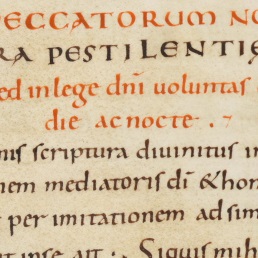 PECCATORUM NO
RA PESTILENTIĘ
ed in lege dnī voluntas
die ac nocte .
scriptura divinitus in
nem mediatoris dī & hom
per imitationem ad sim
ipse ait : Siquis mih